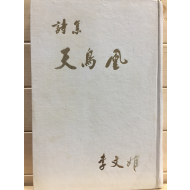 詩集
天鳥風
李文雄